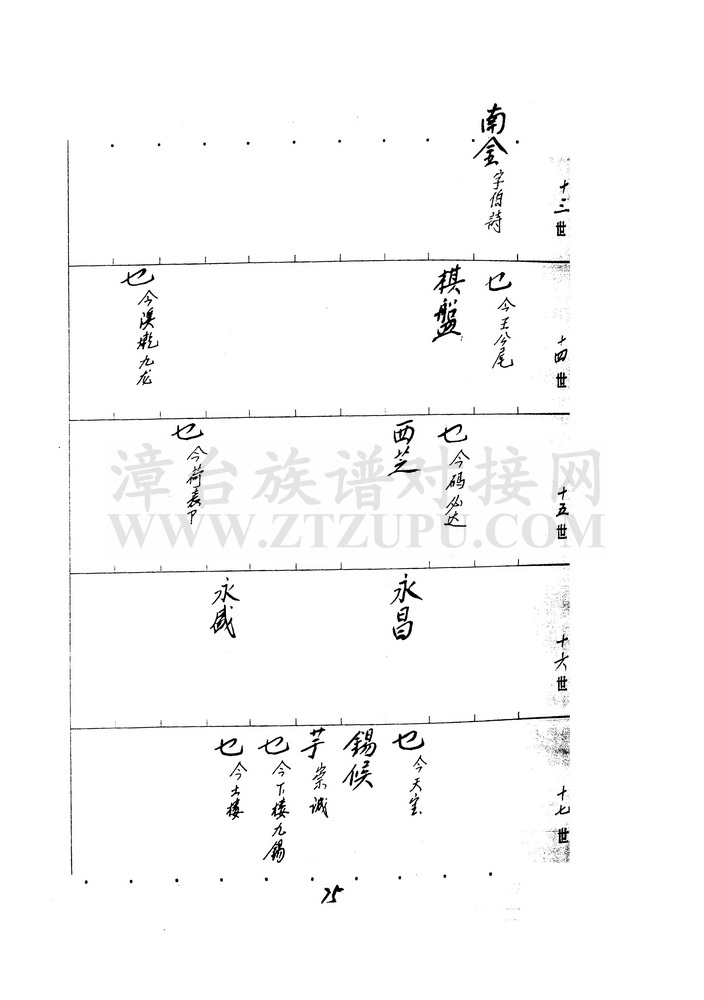 十三世
南金 字伯詩
十四世
乜 今王公尾
棋盤
乜 今溪乾九龙
十五世
乜 今码必达
西芝
乜 今荷
十六世
永昌
永盛
十七世
乜 今天宝
錫候
芋 崇诚
乜 今下楼九錫
乜 今土楼
75
漳台族谱对接网
WWW.ZTZUPU.COM